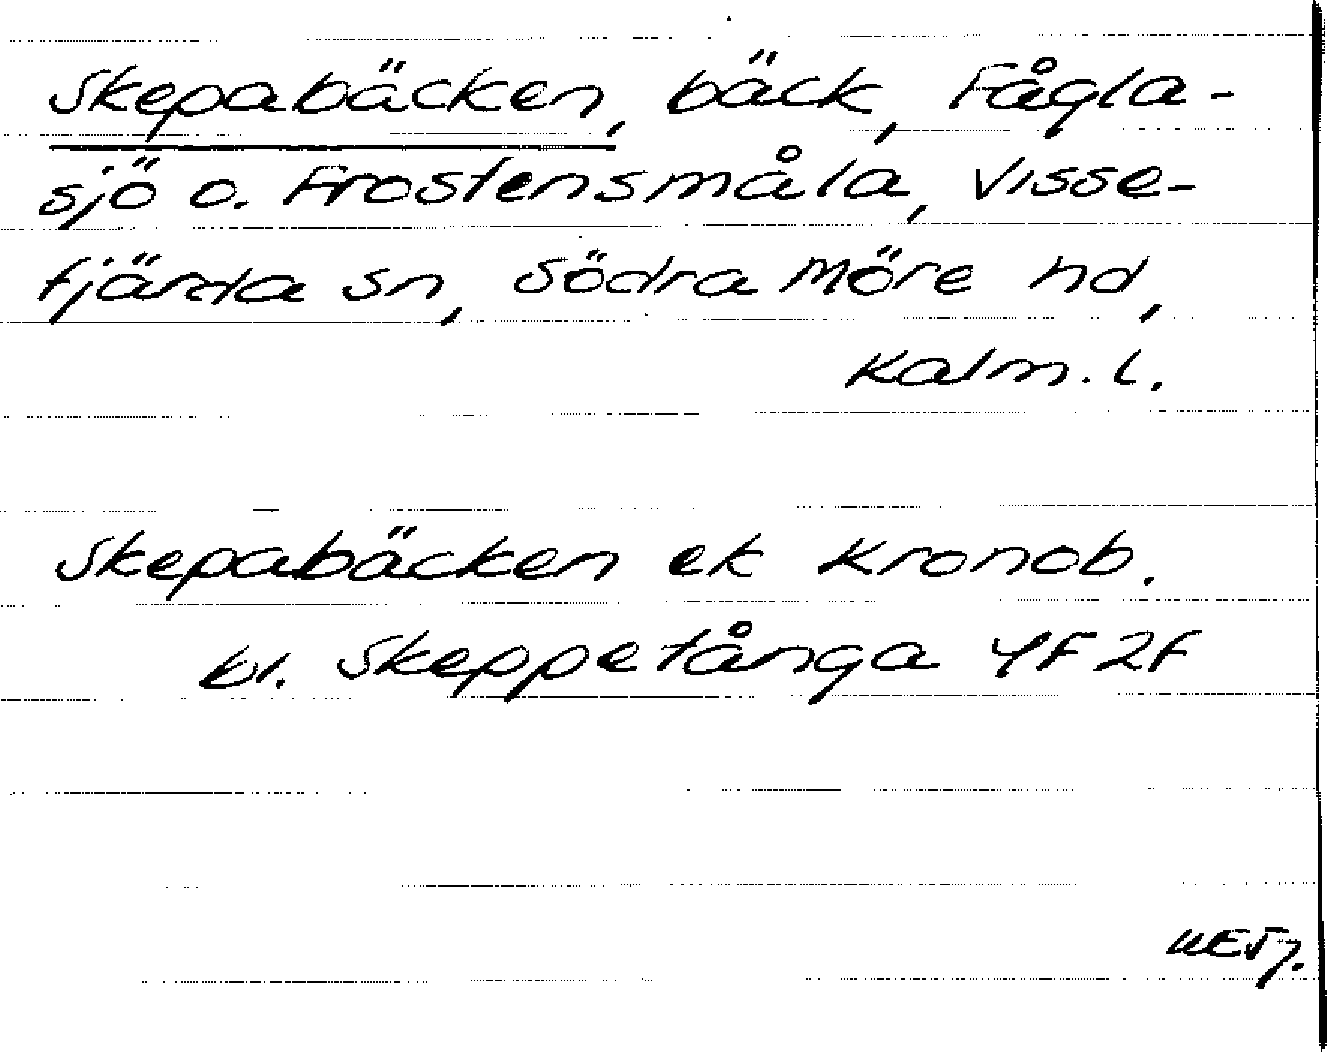 Skepabäcken, bäck, Fågla-
sjö o. Frostensmåla, Visse-
fjärda sn, Södra Möre hd,
Kalm. l.
Skepabäcken ek Kronob.
bl. Skeppetånga 4F 2f